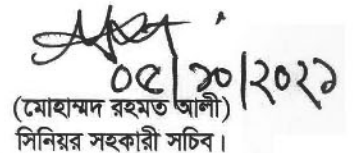 ০৫/১০/২০২১
(মোহাম্মদ রহমত আলী)
সিনিয়র সহকারী সচিব।